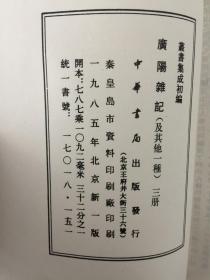 叢書集成初編
廣陽雜記(及其他一種) 三册
中華書局出版發行
(北京王府井大街三十六號)
秦皇島市資料印刷廠印刷
一九八五年北京新一版
開本:七八七乘一〇九二毫米 三十二分之一
統一書號:一七〇一八·一五一